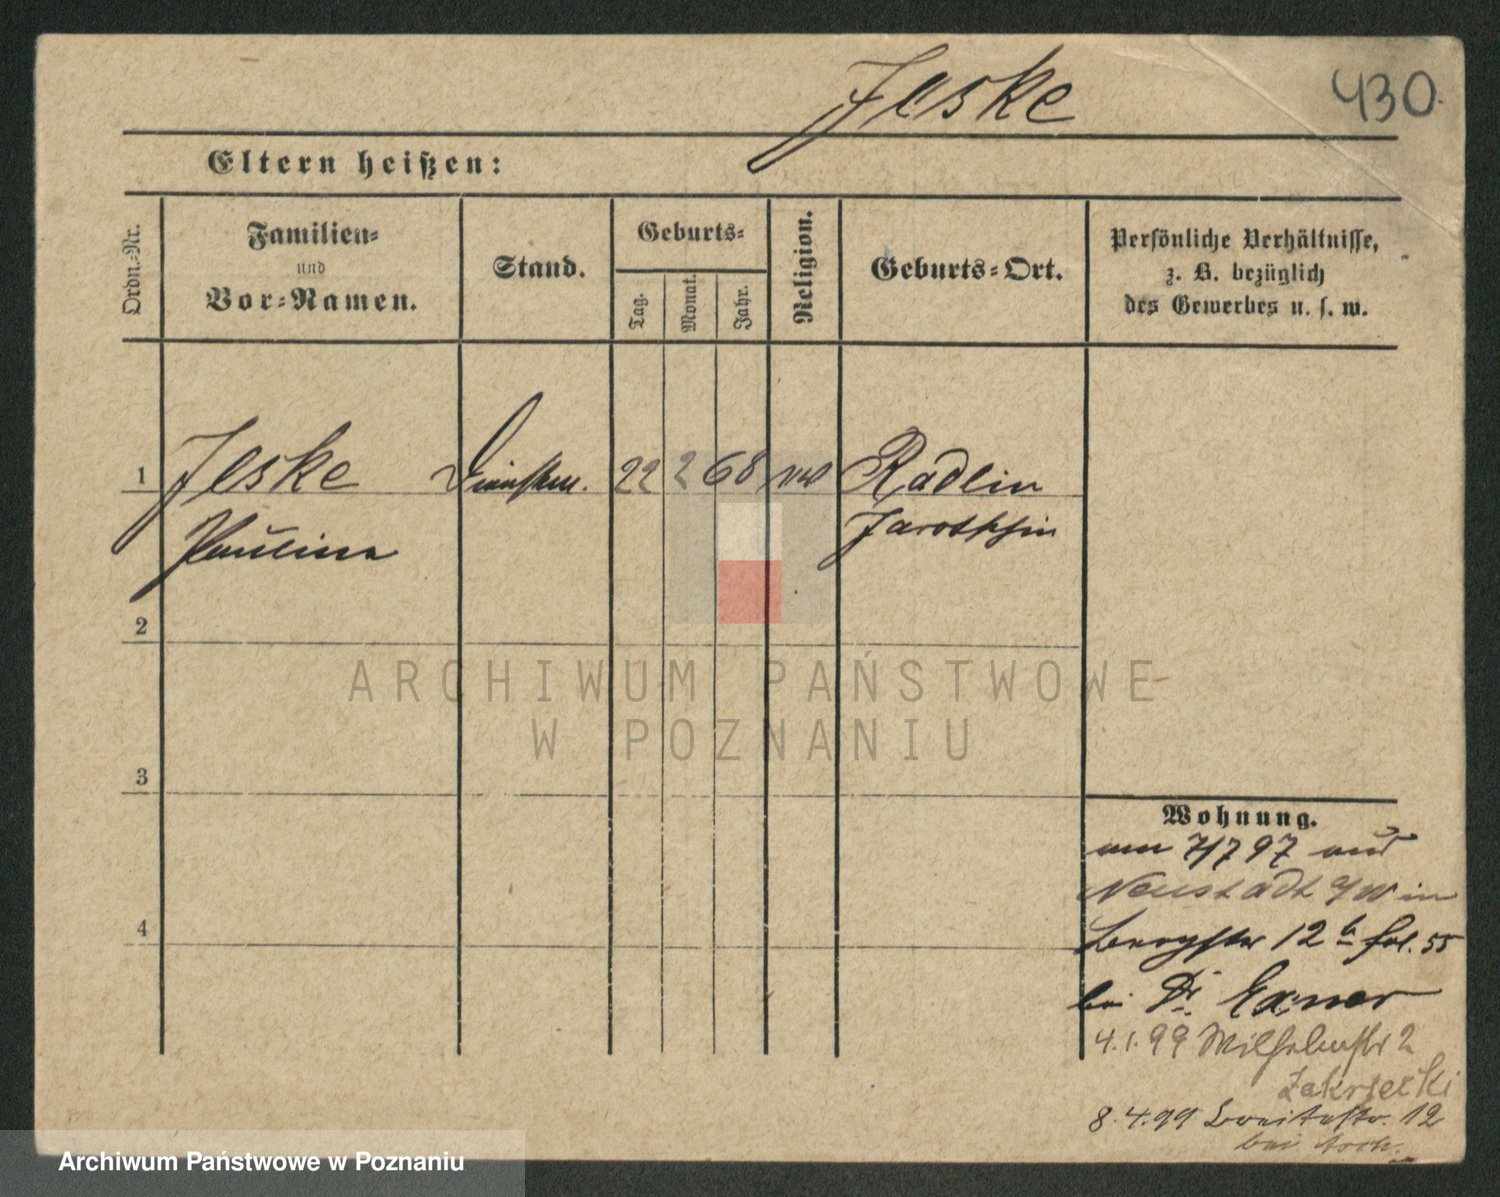 Jeske
430.
Eltern heißen:
Ordn.-Nr.
Familien-
und
Vor-Namen.
Stand.
Geburts-
Tag.
Monat.
Jahr.
Religion.
Geburts-Ort.
Persönliche Verhältnisse,
z. B. bezüglich
des Gewerbes u. s. w.
1 Jeske 22 2 68 Radlin
Paulina Jarotschin
2
3
4
Wohnung.
7/7 97
Neustadt a/W in
Bergstr 12 b fol. 55
bei Dr. Exner
4.1.99 Wilhelmstr 2
Zakrzecki
8.4.99 Breitestr. 12
bei
ARCHIWUM PAŃSTWOWE
W POZNANIU
Archiwum Państwowe w Poznaniu